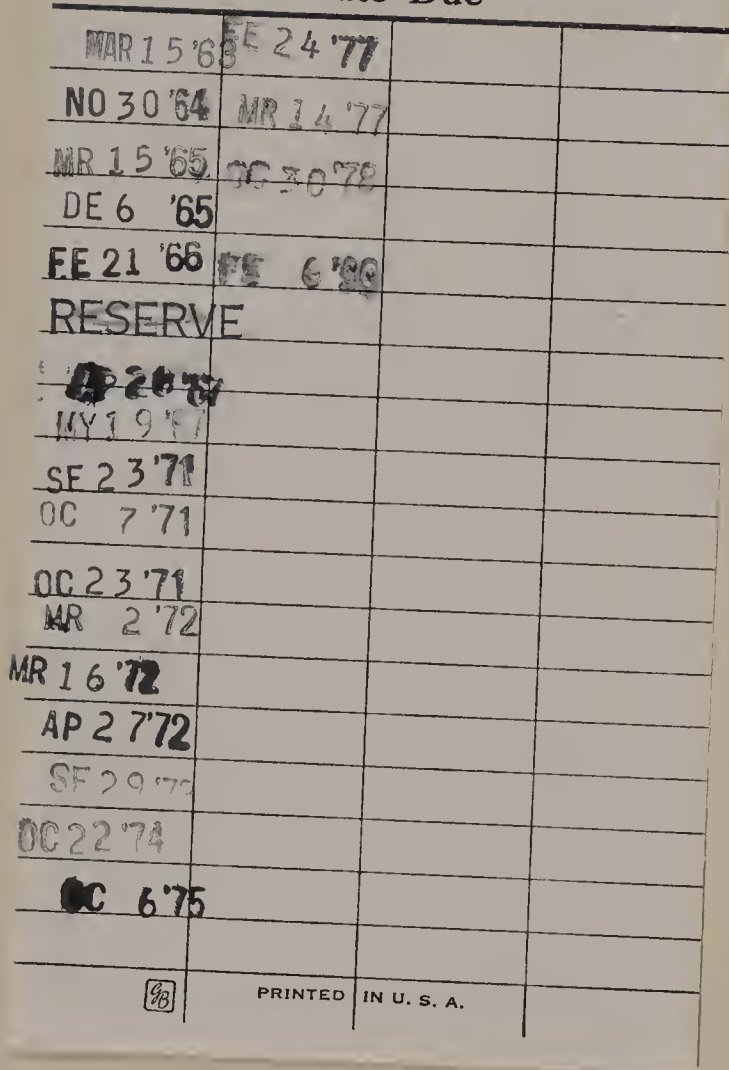 Due
MAR 15 '63
NO 30 '64
MR 15 '65
DE 6 '65
FE 21 '66
RESERVE
AP '67
MY 19 '67
SE 23 '71
OC 7 '71
OC 23 '71
MR 2 '72
MR 16 '72
AP 27 '72
SE 29
OC 22 '74
OC 6 '75
FE 24 '77
MR 14 '77
OC 30 '78
FE 6
GB
PRINTED IN U. S. A.